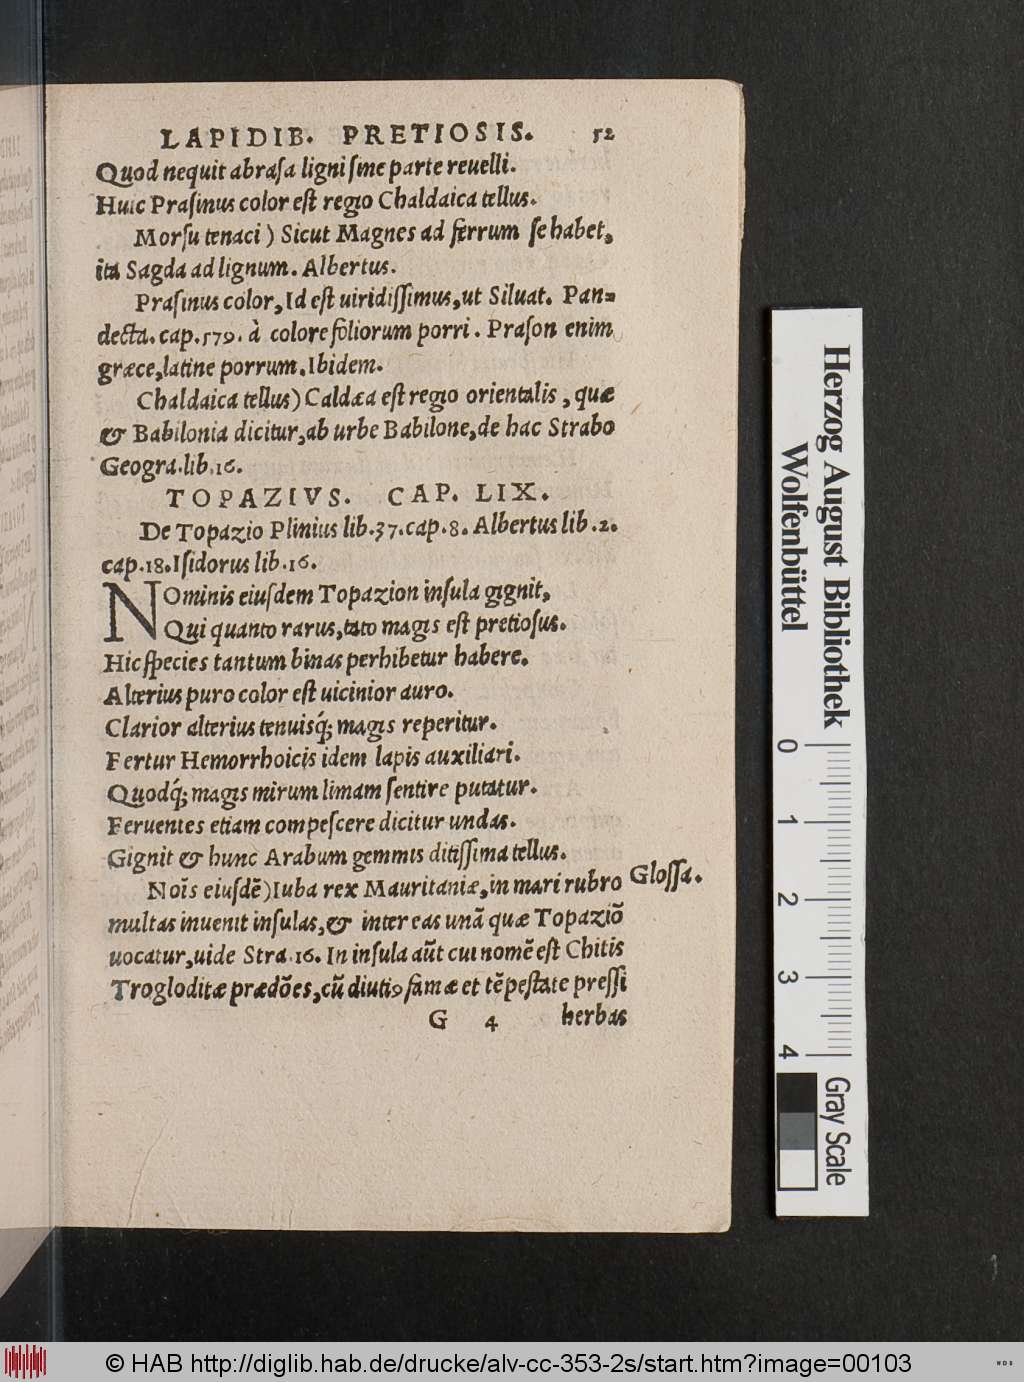 LAPIDIB. PRETIOSIS. 52
Quod nequit abrasa ligni sine parte reuelli.
Huic Prasinus color est regio Chaldaica tellus.
Morsu tenaci) Sicut Magnes ad ferrum se habet,
ita Sagda ad lignum. Albertus.
Prasinus color, Id est uiridissimus, ut Siluat. Pan=
decta. cap. 579. à colore foliorum porri. Prason enim
græce, latine porrum. Ibidem.
Chaldaica tellus) Caldæa est regio orientalis, quæ
& Babilonia dicitur, ab urbe Babilone, de hac Strabo
Geogra. lib. 16.
TOPAZIVS. CAP. LIX.
De Topazio Plinius lib. 37. cap. 8. Albertus lib. 2.
cap. 18. Isidorus lib. 16.
NOminis eiusdem Topazion insula gignit,
Qui quanto rarus, tãto magis est pretiosus.
Hic species tantum binas perhibetur habere.
Alterius puro color est uicinior auro.
Clarior alterius tenuisq́; magis reperitur.
Fertur Hemorrhoicis idem lapis auxiliari.
Quodq́; magis mirum limam sentire putatur.
Feruentes etiam compescere dicitur undas.
Gignit & hunc Arabum gemmis ditissima tellus.
Noĩs eiusdẽ) Iuba rex Mauritaniæ, in mari rubro Glossa.
multas inuenit insulas, & inter eas unã quæ Topaziõ
uocatur, uide Stra. 16. In insula aũt cui nomẽ est Chitis
Trogloditæ prædões, cũ diutiꝰ fame et tẽpestate pressi
G 4 herbas
Herzog August Bibliothek
Wolfenbüttel
0 1 2 3 4
Gray Scale
© HAB http://diglib.hab.de/drucke/alv-cc-353-2s/start.htm?image=00103